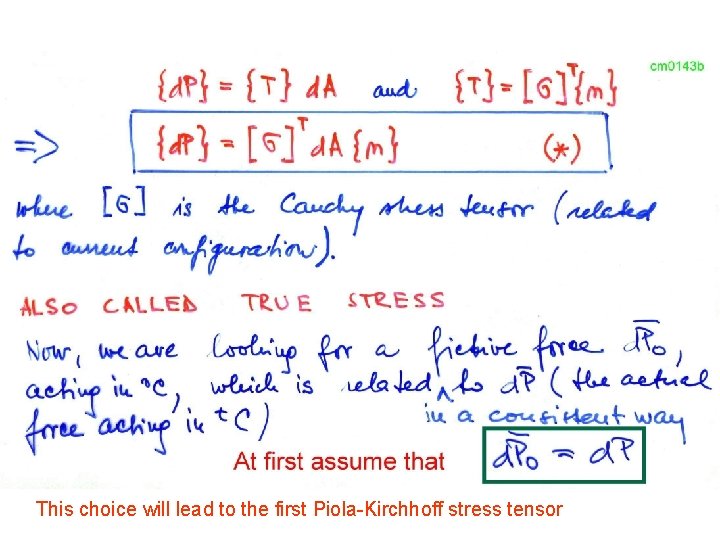 cm 0143 b
{dP} = {T} dA and {T} = [σ]ᵀ{n}
=> {dP} = [σ]ᵀ dA {n} (*)
where [σ] is the Cauchy stress tensor (related
to current configuration).
ALSO CALLED TRUE STRESS
Now, we are looking for a fictive force d͞P₀,
acting in ⁰C, which is related ^ to d͞P (the actual
in a consistent way
force acting in ᵗC)
At first assume that d͞P₀ = d͞P
This choice will lead to the first Piola-Kirchhoff stress tensor